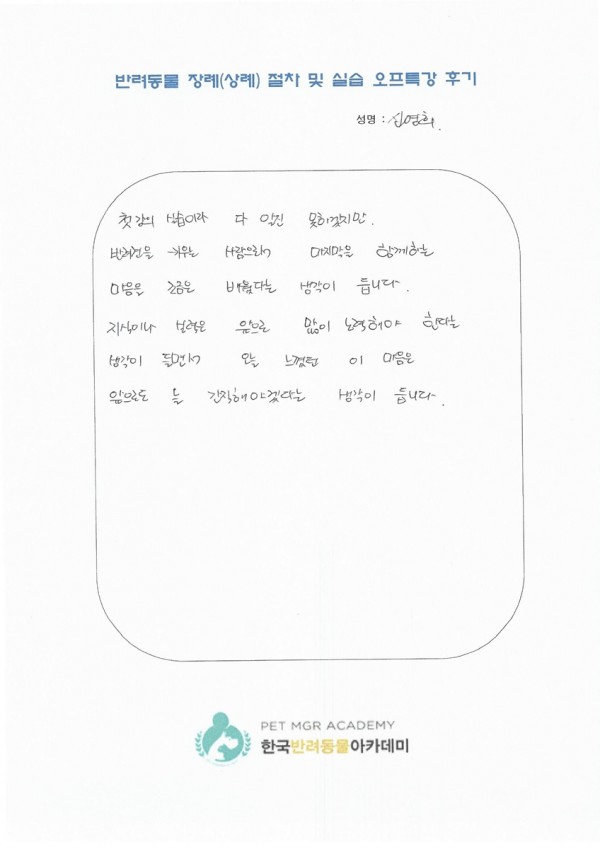 반려동물 장례(상례) 절차 및 실습 오프특강 후기
성명 : 심영희.
첫 강의 실습이라 다 익힌 못하겠지만.
반려견을 키우는 사람으로서 마지막을 함께하는
마음을 조금은 배웠다는 생각이 듭니다.
지식이나 실력은 앞으로 많이 노력해야 한다는
생각이 들면서 오늘 느꼈던 이 마음은
앞으로도 늘 간직해야겠다는 생각이 듭니다.
PET MGR ACADEMY
한국반려동물아카데미